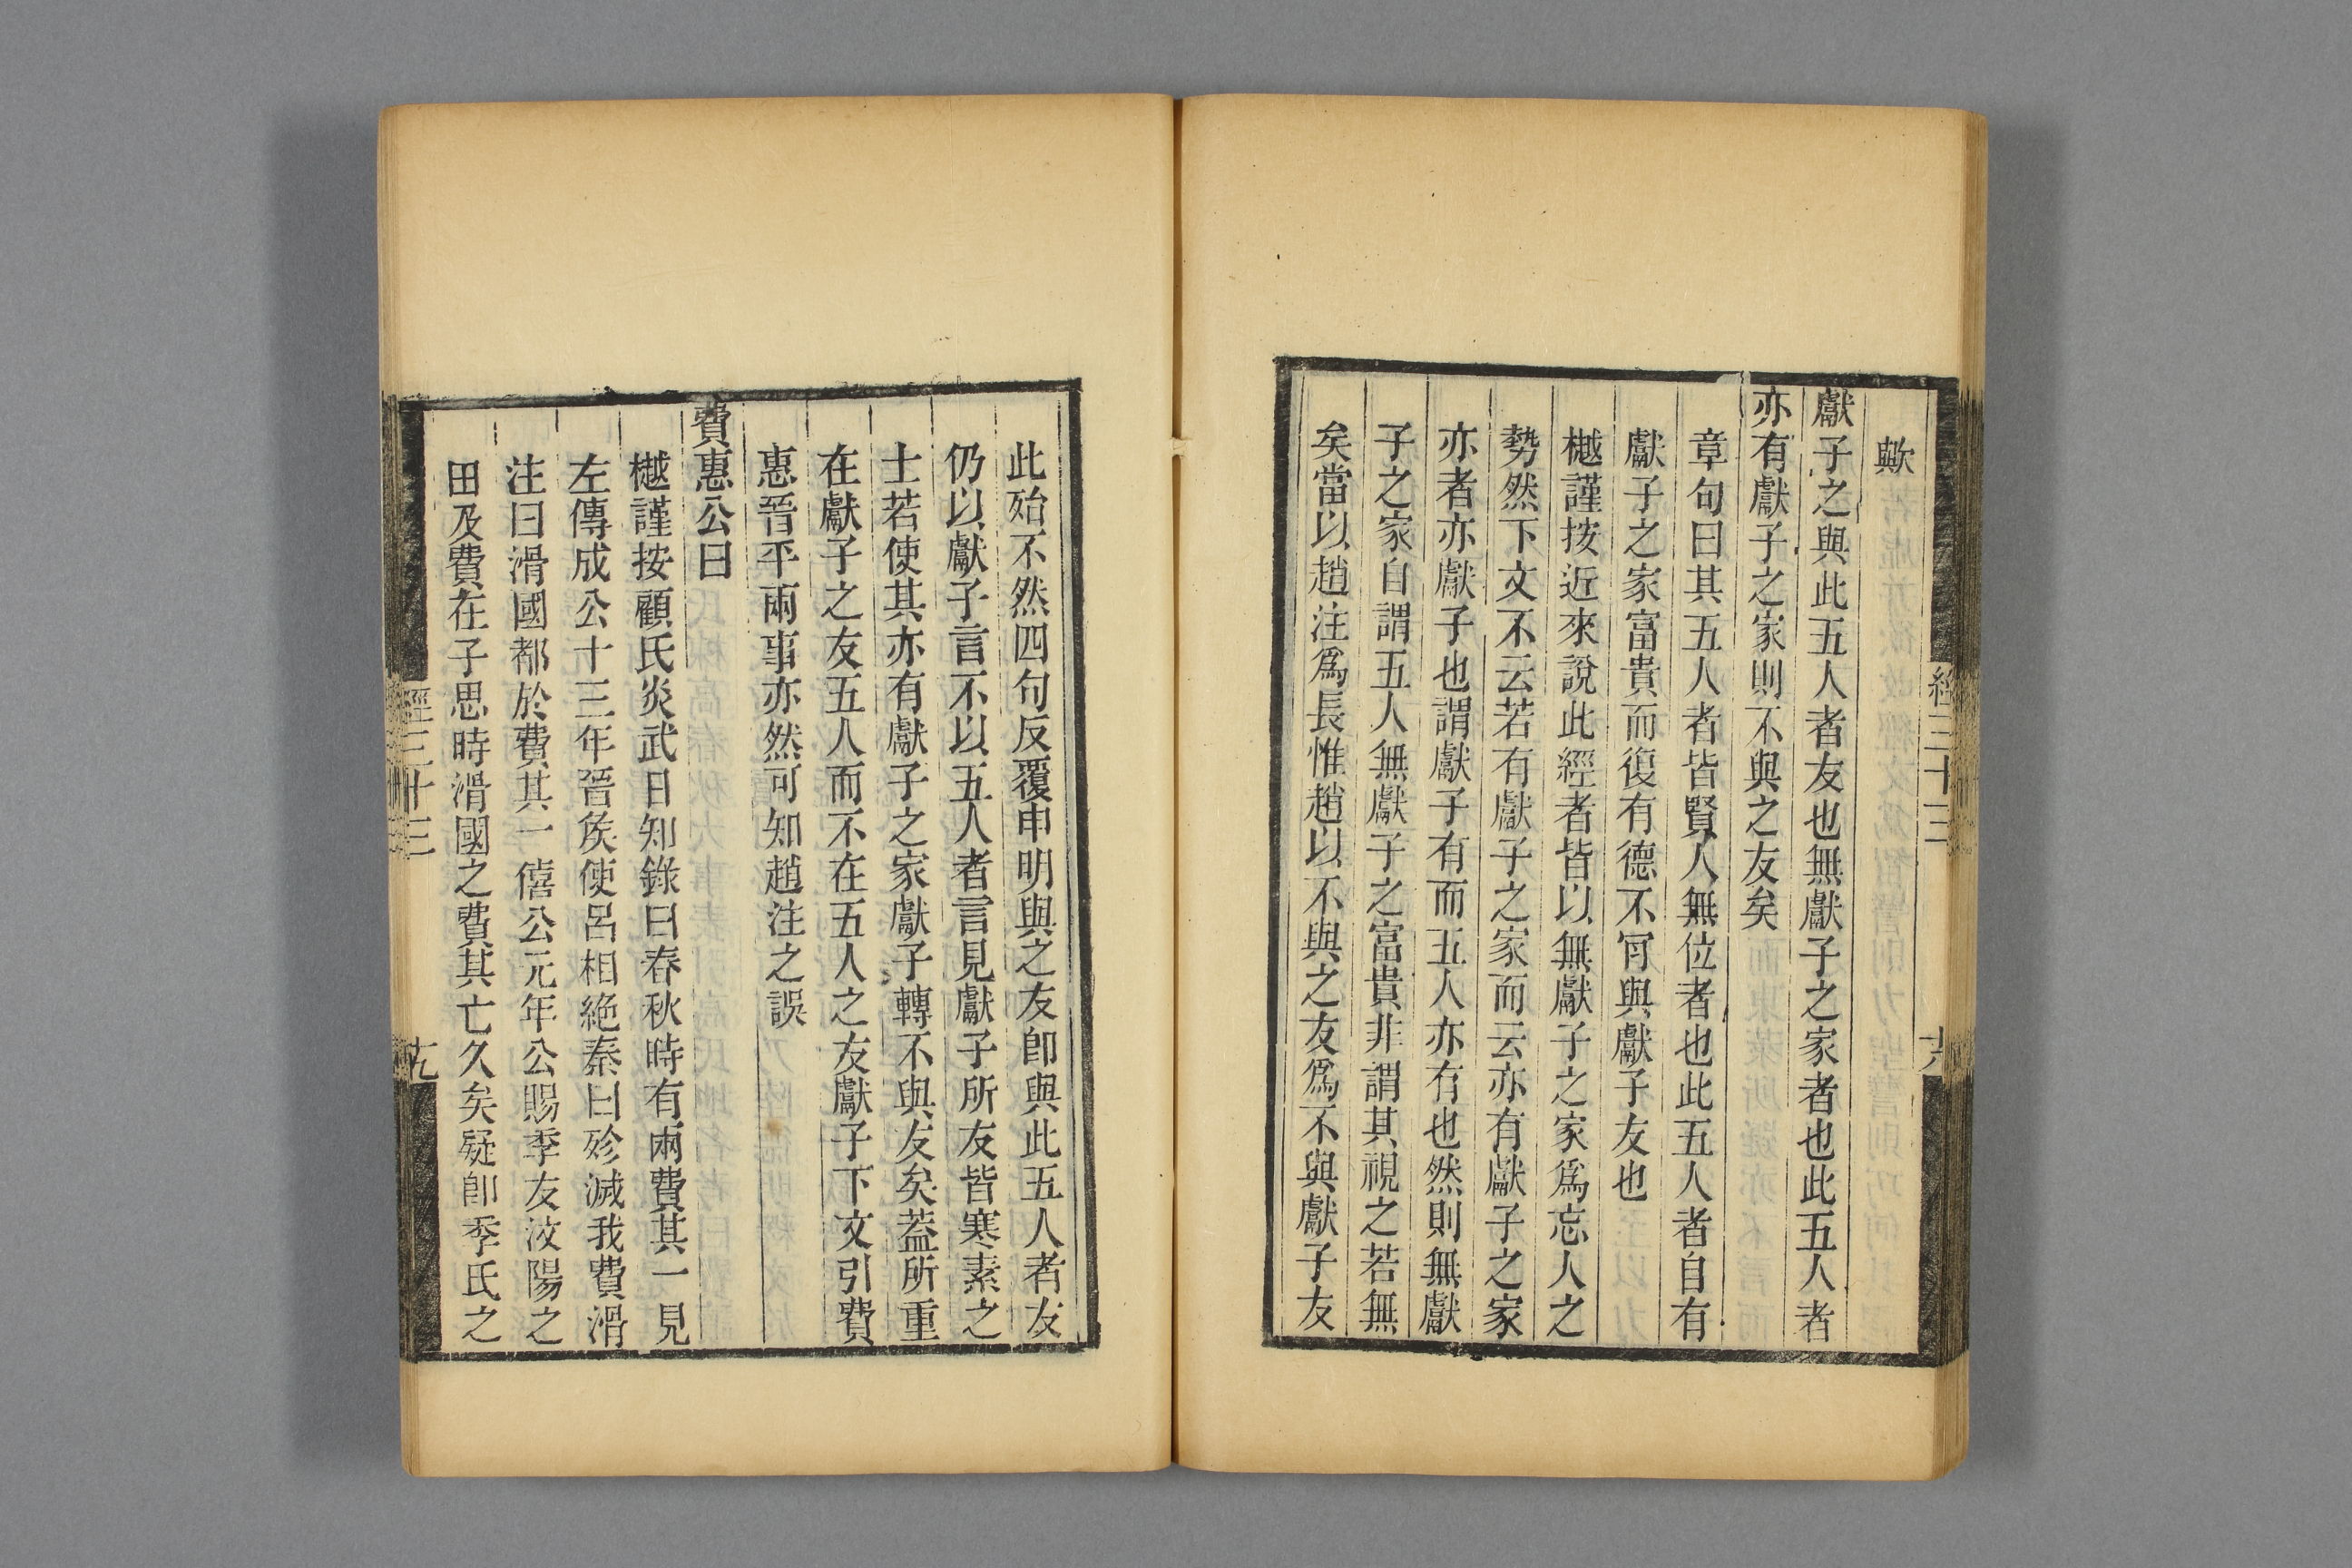 歟
獻子之與此五人者友也無獻子之家者也此五人者
亦有獻子之家則不與之友矣
章句曰其五人者皆賢人無位者也此五人者自有
獻子之家富貴而復有德不肎與獻子友也
樾謹按近來說此經者皆以無獻子之家爲忘人之
勢然下文不云若有獻子之家而云亦有獻子之家
亦者亦獻子也謂獻子有而五人亦有也然則無獻
子之家自謂五人無獻子之富貴非謂其視之若無
矣當以趙注爲長惟趙以不與之友爲不與獻子友
經三十三
六
此殆不然四句反覆申明與之友卽與此五人者友
仍以獻子言不以五人者言見獻子所友皆寒素之
士若使其亦有獻子之家獻子轉不與友矣葢所重
在獻子之友五人而不在五人之友獻子下文引費
惠晉平兩事亦然可知趙注之誤
費惠公曰
樾謹按顧氏炎武日知錄曰春秋時有兩費其一見
左傳成公十三年晉矦使呂相絶秦曰殄滅我費滑
注曰滑國都於費其一僖公元年公賜季友汶陽之
田及費在子思時滑國之費其亡久矣疑卽季氏之
經三十三